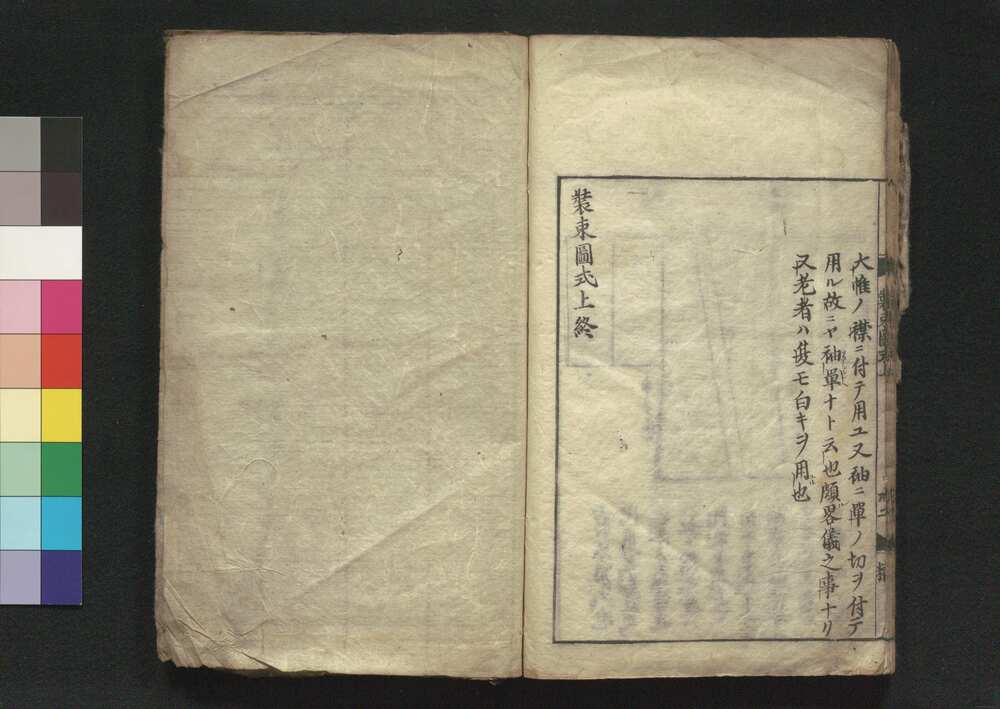 大帷ノ襟ニ付テ用ユ又袖ニ單ノ切ヲ付テ
用ル故ニヤ袖單ナト云也頗畧儀之事ナリ
又老者ハ モ白キヲ用也
裝束圖式上終